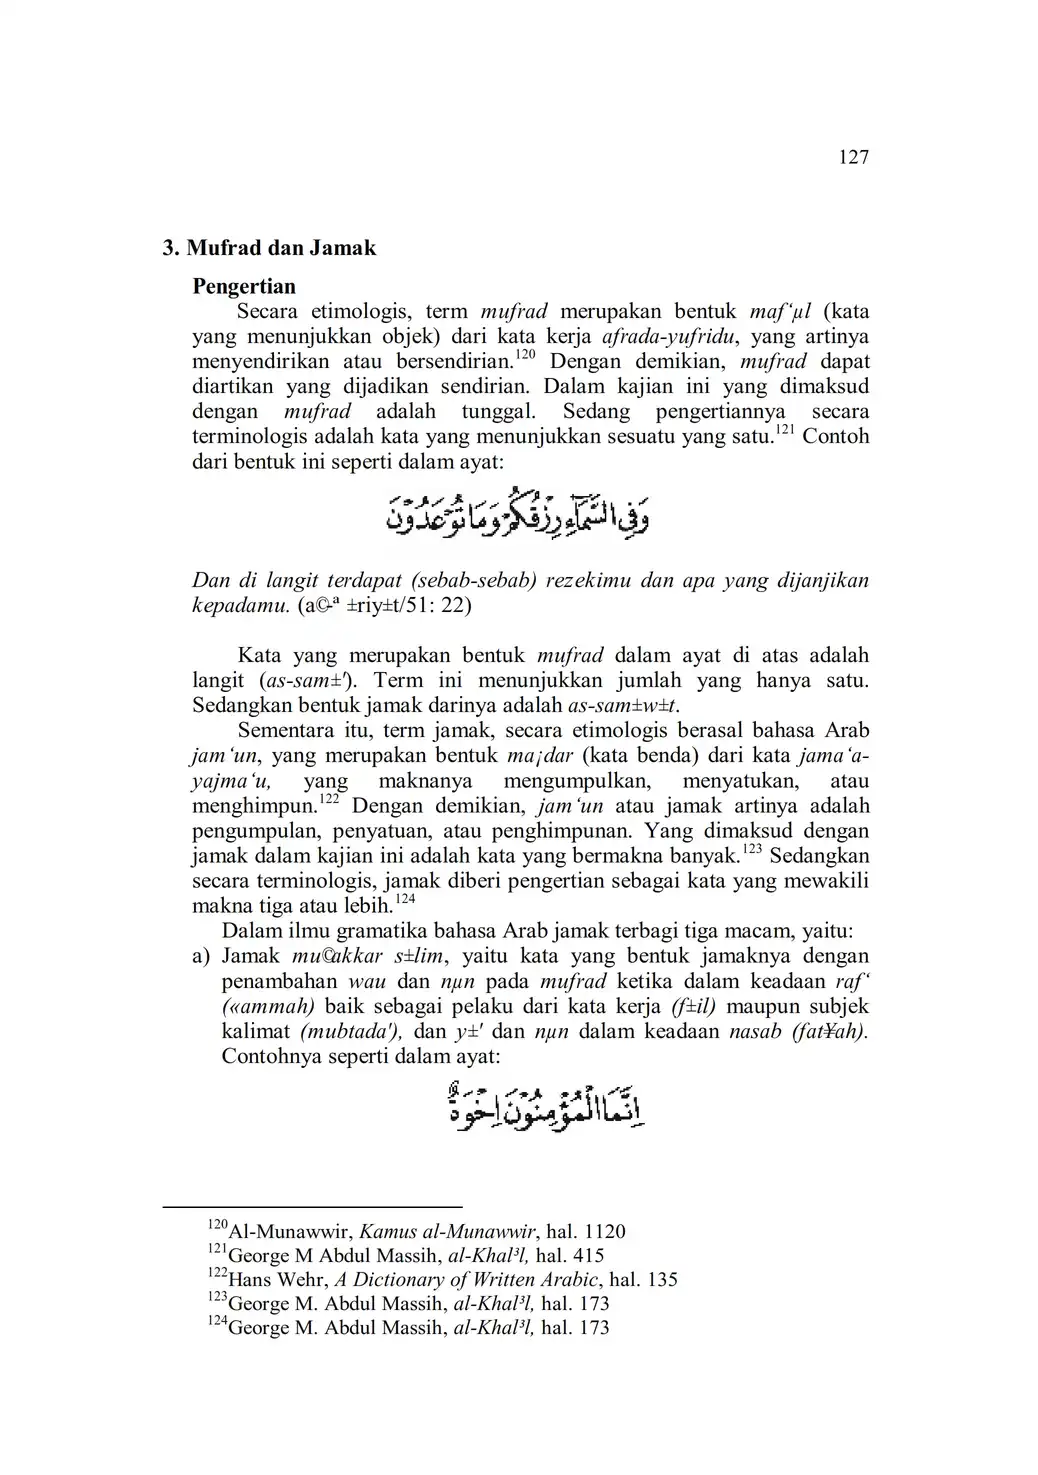 127
3. Mufrad dan Jamak
Pengertian
Secara etimologis, term mufrad merupakan bentuk maf‘µl (kata
yang menunjukkan objek) dari kata kerja afrada-yufridu, yang artinya
menyendirikan atau bersendirian.120 Dengan demikian, mufrad dapat
diartikan yang dijadikan sendirian. Dalam kajian ini yang dimaksud
dengan mufrad adalah tunggal. Sedang pengertiannya secara
terminologis adalah kata yang menunjukkan sesuatu yang satu.121 Contoh
dari bentuk ini seperti dalam ayat:
وَفِى السَّمَاۤءِ رِزْقُكُمْ وَمَا تُوْعَدُوْنَ
Dan di langit terdapat (sebab-sebab) rezekimu dan apa yang dijanjikan
kepadamu. (a©-ª ±riy±t/51: 22)
Kata yang merupakan bentuk mufrad dalam ayat di atas adalah
langit (as-sam±'). Term ini menunjukkan jumlah yang hanya satu.
Sedangkan bentuk jamak darinya adalah as-sam±w±t.
Sementara itu, term jamak, secara etimologis berasal bahasa Arab
jam‘un, yang merupakan bentuk ma¡dar (kata benda) dari kata jama‘a-
yajma‘u, yang maknanya mengumpulkan, menyatukan, atau
menghimpun.122 Dengan demikian, jam‘un atau jamak artinya adalah
pengumpulan, penyatuan, atau penghimpunan. Yang dimaksud dengan
jamak dalam kajian ini adalah kata yang bermakna banyak.123 Sedangkan
secara terminologis, jamak diberi pengertian sebagai kata yang mewakili
makna tiga atau lebih.124
Dalam ilmu gramatika bahasa Arab jamak terbagi tiga macam, yaitu:
a) Jamak mu©akkar s±lim, yaitu kata yang bentuk jamaknya dengan
penambahan wau dan nµn pada mufrad ketika dalam keadaan raf‘
(«ammah) baik sebagai pelaku dari kata kerja (f±il) maupun subjek
kalimat (mubtada'), dan y±' dan nµn dalam keadaan nasab (fat¥ah).
Contohnya seperti dalam ayat:
اِنَّمَا الْمُؤْمِنُوْنَ اِخْوَةٌ
120Al-Munawwir, Kamus al-Munawwir, hal. 1120
121George M Abdul Massih, al-Khal³l, hal. 415
122Hans Wehr, A Dictionary of Written Arabic, hal. 135
123George M. Abdul Massih, al-Khal³l, hal. 173
124George M. Abdul Massih, al-Khal³l, hal. 173